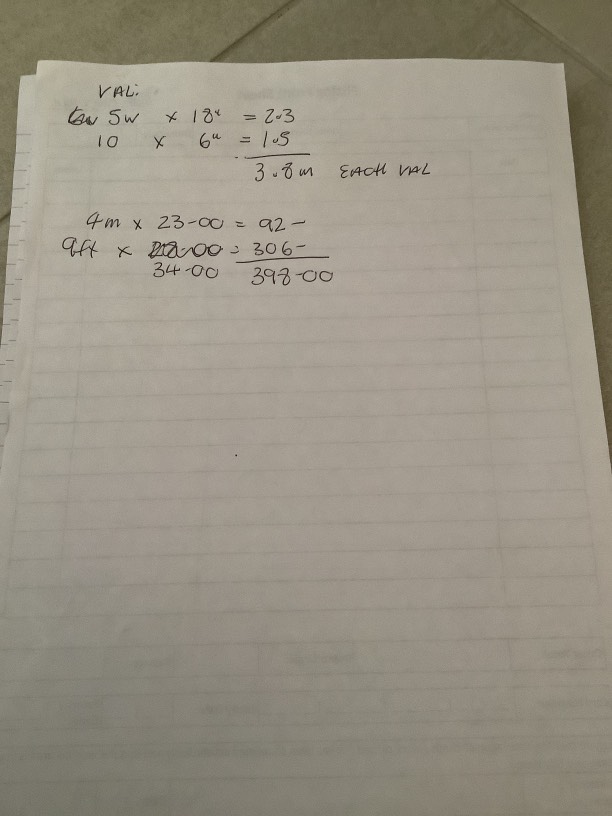 VAL:
5W x 18" = 2.3
10 x 6" = 1.5
3.8m EACH VAL
4m x 23-00 = 92-
9ft x = 306-
34-00 398-00